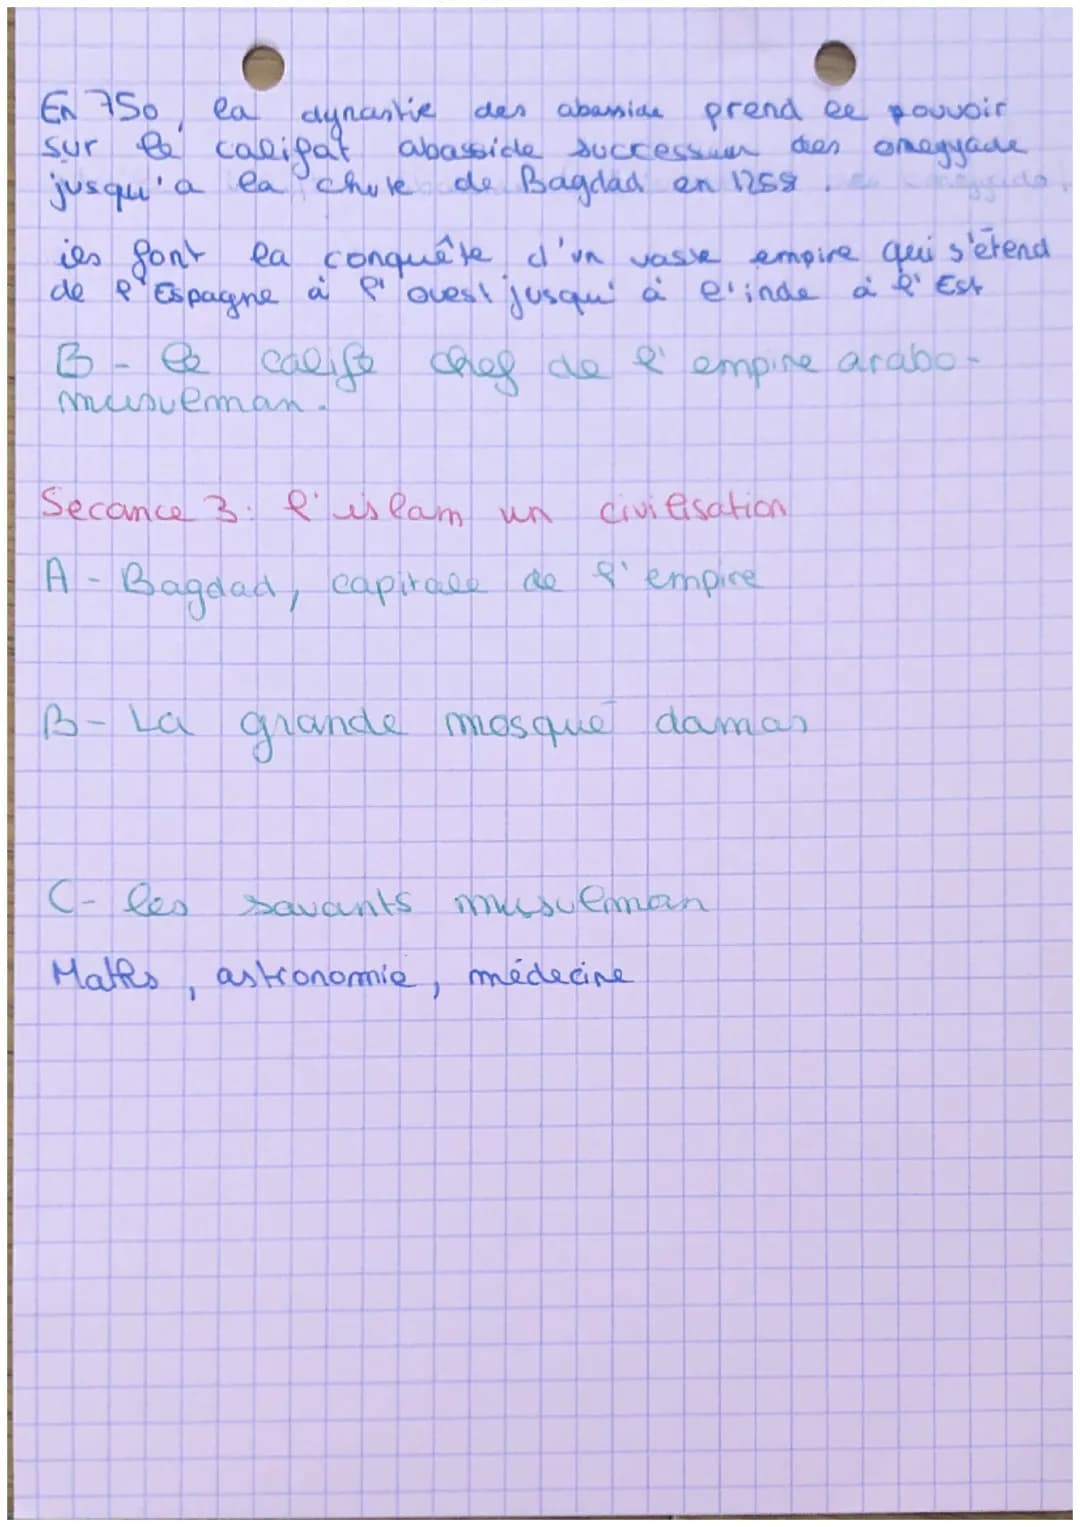 En 750, la dynastie des abasside prend le pouvoir
sur le califat abasside successeur des omeyyade
jusqu'a la chute de Bagdad en 1258.
ils font la conquête d'un vaste empire qui s'étend
de l'Espagne à l'ouest jusqu'à l'inde à l'Est
B - le calife chef de l'empire arabo-
musulman.
Secance 3: l'islam un civilisation
A - Bagdad, capitale de l'empire
B - La grande mosqué damas
C - les savants musulman
Maths, astronomie, médecine